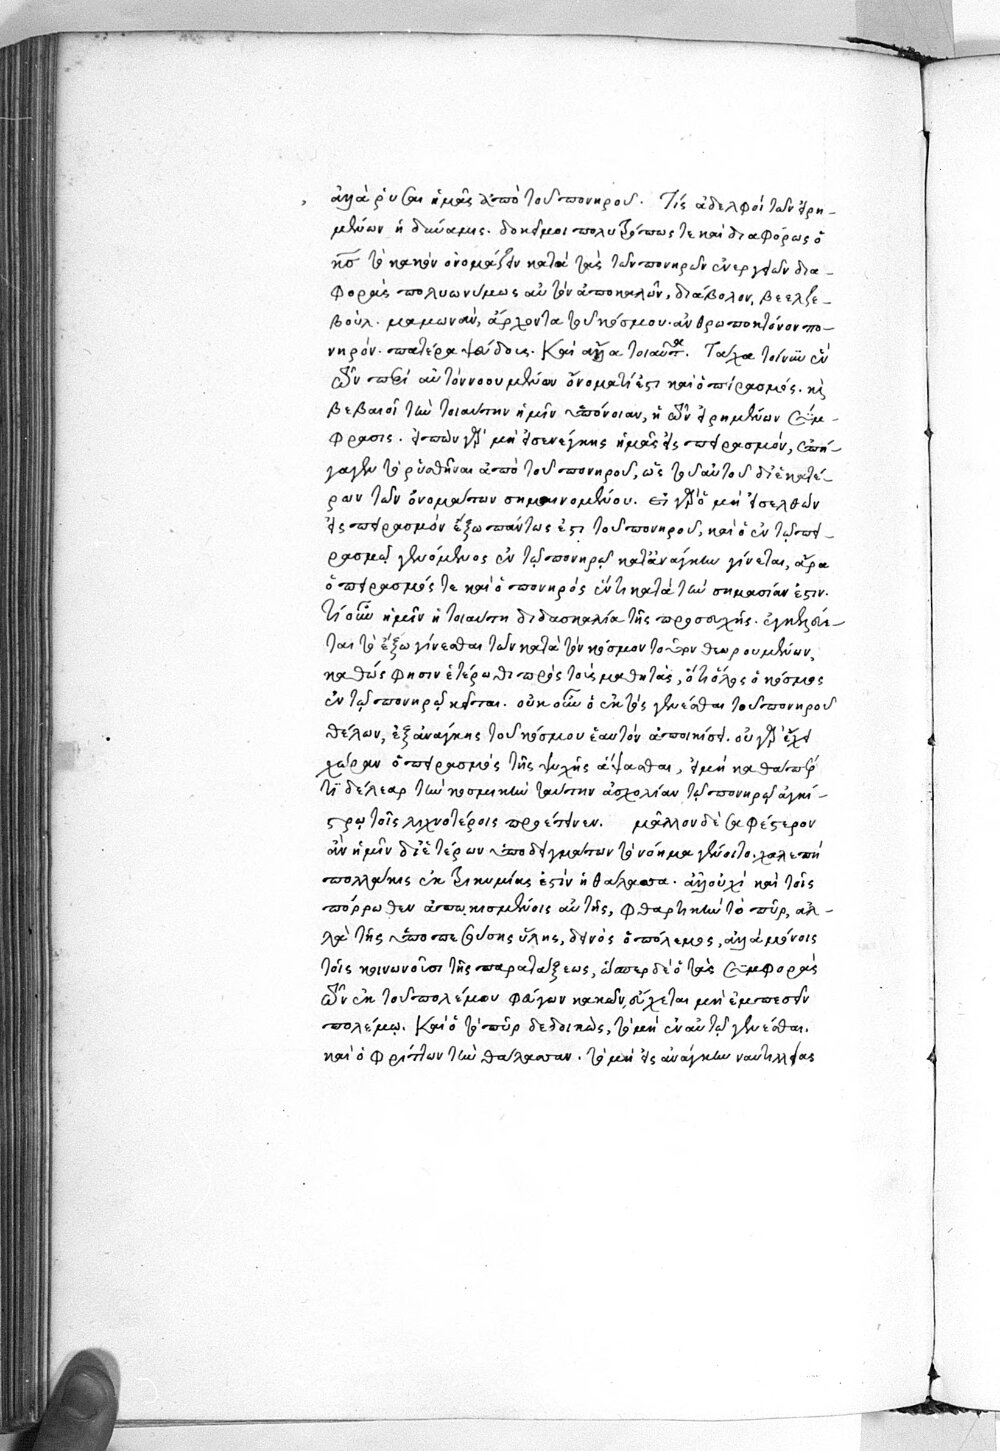 ἀλλὰ ῥῦσαι ἡμᾶς ἀπὸ τοῦ πονηροῦ. Τίς ἀδελφοί τῶν εἰρη-
μένων ἡ δύναμις. δοκεῖ μοι πολυτρόπως τε καὶ διαφόρως ὁ
κσ̅ τὸ κακὸν ὀνομάζειν κατὰ τὰς τῶν πονηρῶν ἐνεργειῶν δια-
φορὰς πολυωνύμως αὐτὸν ἀποκαλῶν, διάβολον, βεελζε-
βούλ. μαμωνᾶν, ἄρχοντα τοῦ κόσμου. ἀνθρωποκτόνον πο-
νηρόν. πατέρα ψεύδους. Καὶ ἄλλα τοιαῦτα. Τάχα τοίνυν ἓν
τῶν περὶ αὐτὸν νοουμένων ὀνομάτων ἐστι καὶ ὁ πειρασμός. κὶ
βεβαιοῖ τὴν τοιαύτην ἡμῖν ὑπόνοιαν, ἡ τῶν εἰρημένων σύμ-
φρασις. εἰπὼν γὰρ μὴ εἰσενέγκης ἡμᾶς εἰς πειρασμόν, ἐπή-
γαγεν τὸ ῥυσθῆναι ἀπὸ τοῦ πονηροῦ, ὡς τοῦ αὐτοῦ δι' ἑκατέ-
ρων τῶν ὀνομάτων σημαινομένου. Εἰ γὰρ ὁ μὴ εἰσελθὼν
εἰς πειρασμὸν ἔξω πάντως ἐστι τοῦ πονηροῦ, καὶ ὁ ἐν τῷ πει-
ρασμῷ γενόμενος ἐν τῷ πονηρῷ κατ' ἀνάγκην γίνεται, ἄρα
ὁ πειρασμός τε καὶ ὁ πονηρὸς ἕν τι κατὰ τὴν σημασίαν ἐστιν.
τί οὖν ἡμῖν ἡ τοιαύτη διδασκαλία τῆς προσευχῆς. ἐγκελεύε-
ται τὸ ἔξω γίνεσθαι τῶν κατὰ τὸν κόσμον τοῦτον θεωρουμένων,
καθώς φησιν ἑτέρωθι πρὸς τοὺς μαθητὰς, ὅτι ὅλος ὁ κόσμος
ἐν τῷ πονηρῷ κεῖται. οὐκοῦν ὁ ἐκτὸς γενέσθαι τοῦ πονηροῦ
θέλων, ἐξ ἀνάγκης τοῦ κόσμου ἑαυτὸν ἀποικίσει. οὐ γὰρ ἔχει
χώραν ὁ πειρασμὸς τῆς ψυχῆς ἅψασθαι, εἰ μὴ καθάπερ
τι δέλεαρ τὴν κοσμικὴν ταύτην ἀσχολίαν τῷ πονηρῷ ἀγκί-
στρῳ τοῖς λιχνοτέροις προέτεινεν. μᾶλλον δὲ σαφέστερον
ἂν ἡμῖν δι' ἑτέρων ὑποδειγμάτων τὸ νόημα γένοιτο. χαλεπὴ
πολλάκις ἐκ τρικυμίας ἐστὶν ἡ θάλασσα. ἀλλ' οὐχὶ καὶ τοῖς
πόρρωθεν ἀπῳκισμένοις αὐτῆς, φθαρτικὸν τὸ πῦρ, ἀλ-
λὰ τῆς ὑποπεσούσης ὕλης, δεινὸς ὁ πόλεμος, ἀλλὰ μόνοις
τοῖς κοινωνοῦσι τῆς παρατάξεως, ὥσπερ δὲ ὁ τὰς συμφορὰς
τῶν ἐκ τοῦ πολέμου φεύγων κακῶν, εὔχεται μὴ ἐμπεσεῖν
πολέμῳ. Καὶ ὁ τὸ πῦρ δεδοικὼς, τὸ μὴ ἐν αὐτῷ γενέσθαι.
καὶ ὁ φρίττων τὴν θάλασσαν. τὸ μὴ εἰς ἀνάγκην ναυτιλίας